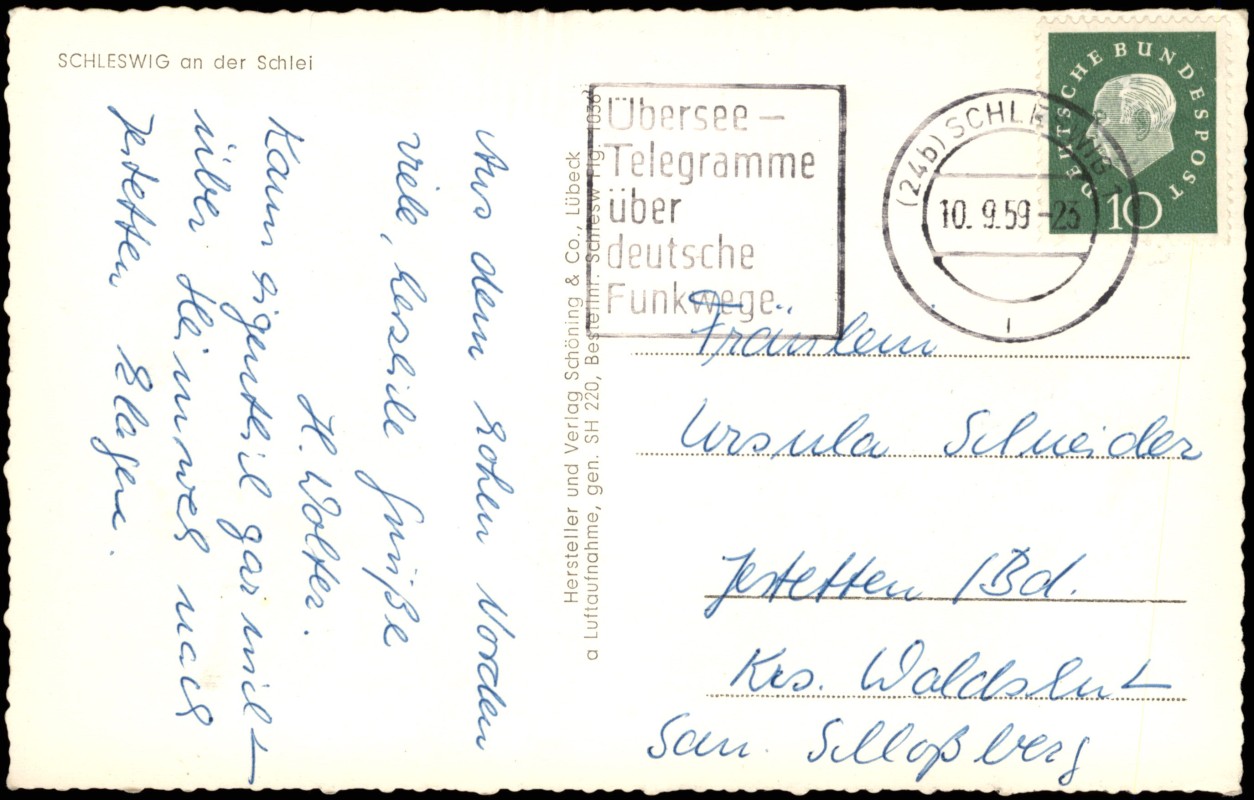 SCHLESWIG an der Schlei
Aus dem hohen Norden
viele, herzliche Grüße
H. Wolter.
Kann eigentlich gar nicht
über Heimweh nach
Jestetten klagen.
Hersteller und Verlag Schöning & Co., Lübeck
a Luftaufnahme, gen. SH 220, Bestellnr. Schlesw Flg. 1036
Übersee-
Telegramme
über
deutsche
Funkwege
(24b) SCHLESWIG 1
10. 9.59-23
DEUTSCHE BUNDESPOST
10
Fräulein
Ursula Schneider
Jestetten /Bd.
Krs. Waldshut
San. Schloßberg